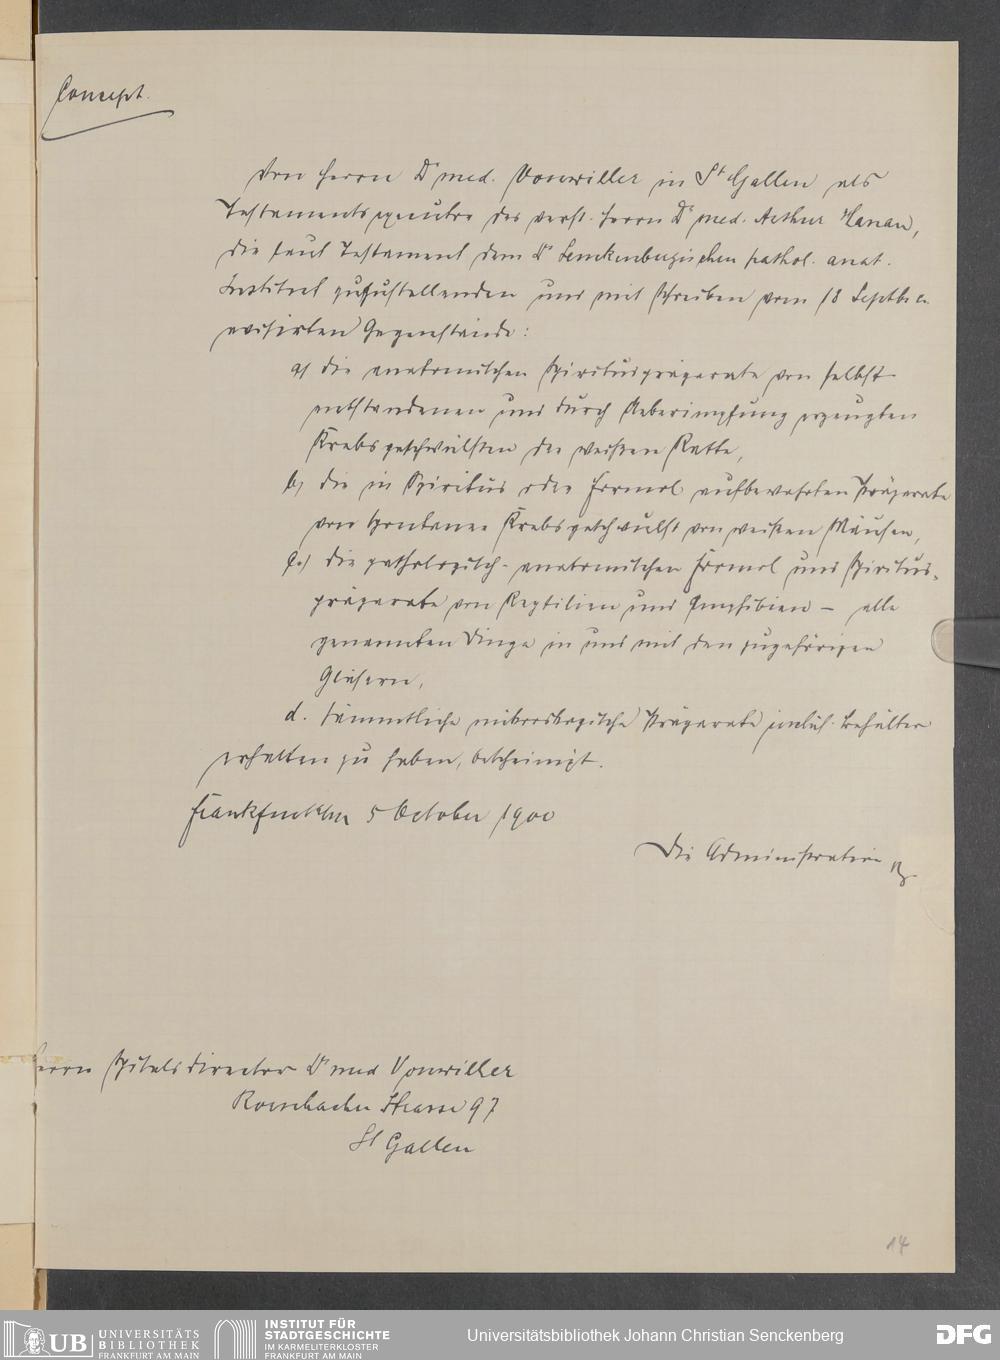 Concept.
Von Herrn Dr med. Vonwiller in St Gallen als
Testamentsexecutor des verst. Herrn Dr med. Arthur Hanau,
die laut Testament dem Dr Senckenbergischen pathol. anat.
Institut zuzustellenden und mit Schreiben vom 18 Septbr
avisirten Gegenstände:
a) die anatomischen Spirituspräparate von selbst
entstandenen und durch Ueberimpfung erzeugten
Krebsgeschwülsten der weißen Ratte,
b) die in Spiritus oder Formol aufbewahrten Präparate
von spontaner Krebsgeschwulst von weißen Mäusen,
c.) die pathologisch-anatomischen Formol und Spiritus-
präparate von Reptilien und Amphibien – alle
genannten Dinge in und mit den zugehörigen
Gläsern,
d. sämmtliche mikroskopische Präparate inclus. Behälter
erhalten zu haben, bescheinigt.
Frankfurt a/m 5 October 1900
Die Administration
Herrn Spitalsdirector Dr med Vonwiller
Rorschacher Strasse 97
St Gallen
14
UB UNIVERSITÄTS
BIBLIOTHEK
FRANKFURT AM MAIN
INSTITUT FÜR
STADTGESCHICHTE
IM KARMELITERKLOSTER
FRANKFURT AM MAIN
Universitätsbibliothek Johann Christian Senckenberg
DFG